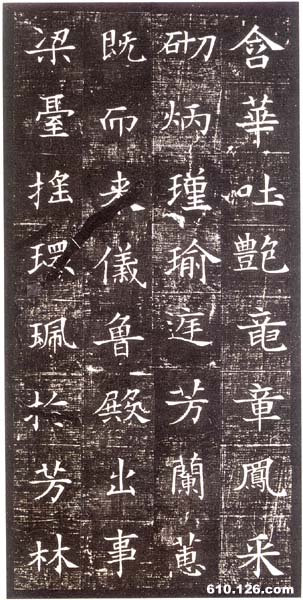 含華吐艶竜章鳳采
砌炳瑾瑜庭芳蘭蕙
既而来儀魯殿出事
梁臺揺環珮於芳林
610.126.com